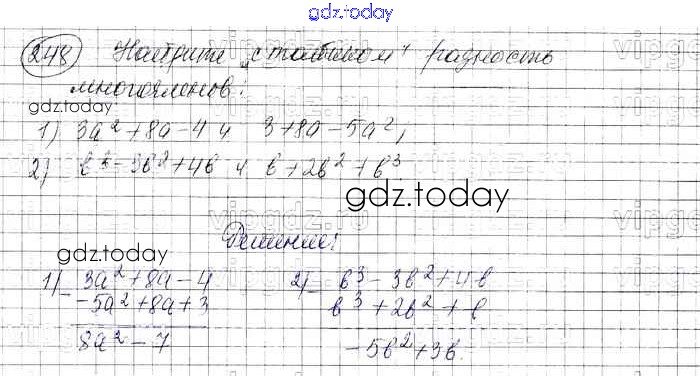 gdz.today
248 Найдите "столбиком" разность
многочленов:
gdz.today
1) 3a² + 8a - 4 и 3 + 8a - 5a²;
2) b³ - 3b² + 4b и b + 2b² + b³
gdz.today
Решение:
gdz.today
1) - 3a² + 8a - 4
-5a² + 8a + 3
8a² - 7
2) - b³ - 3b² + 4b
b³ + 2b² + b
-5b² + 3b